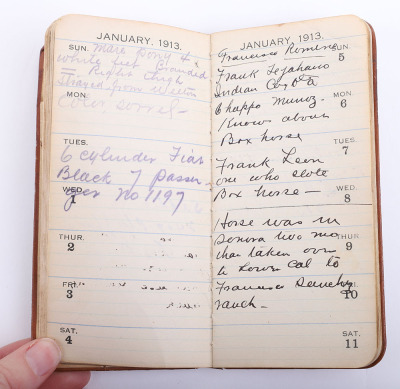 JANUARY, 1913.
SUN. Mare Pony 4
white feet Branded
Right thigh
Strayed from
MON.
Color, sorrel-
TUES.
6 cylinder Fiat
Black 7 Passen
WED.
1
ger No 1197
THUR.
2
FRI.
3
SAT.
4
JANUARY, 1913.
Francisco Romero
SUN.
5
Frank
Indian
MON.
6
Chappo Munoz.
Knows about
Box horse
TUES.
7
Frank Leon
one who stole
WED.
8
Box horse-
Horse was in
Sonora two mo
THUR.
9
than taken over
to Lower Cal to
FRI.
10
Francisco
ranch-
SAT.
11